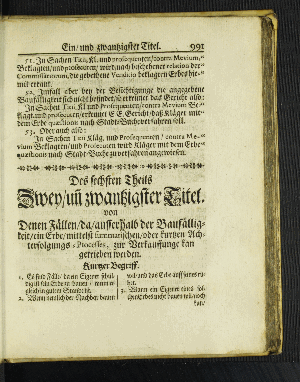 Ein/ und zwantzigster Titel. 991
51. In Sachen Titii, Kl. und prosequenten/ contra Mevium,
Beklagten/ und prosecuten/ wird nach beschehener relation der
Commissariorum, die gebethene Venditio beklagten Erbes hie-
mit erkant.
52. Imfall aber bey der Besichtigunge die angegebene
Baufälligkeit sich nicht befindet/ so erkennet das Gericht also:
In Sachen Titii Kl. und Prosequenten/ contra Mevium Be-
klagt. und prosecuten/ erkennet E. E. Gericht/ daß Kläger mit
dem Erbe quæstionis nach Stadt-Buche verfahren soll.
53. Oder auch also:
In Sachen Titii Kläg. und Prosequenten/ contra Me-
vium Beklagten/ und Prosecuten wird Kläger mit dem Erbe
quæstionis nach Stadt-Buche zu verfahren angewiesen.
Des sechsten Theils
Zwey/ uñ zwantzigster Titel.
von
Denen Fällen/ da/ ausserhalb der Baufällig-
keit/ ein Erbe/ mittelst summarischen/ oder kurtzen Ach-
terfolgungs-Processes, zur Verkauffunge kan
getrieben werden.
Kurtzer Begriff.
1. Es sind Fäll/ da ein Eigener schul-
dig ist sein Erbe zu bauen/ wenn es
gleich in gutem Stande ist.
2. Wann nemlich der Nachbar bauen
wil/ und das Erbe auffzuführen
ist.
3. Wann ein Eigener eines sol-
chen Erbes nicht bauen wil/ noch
kan/